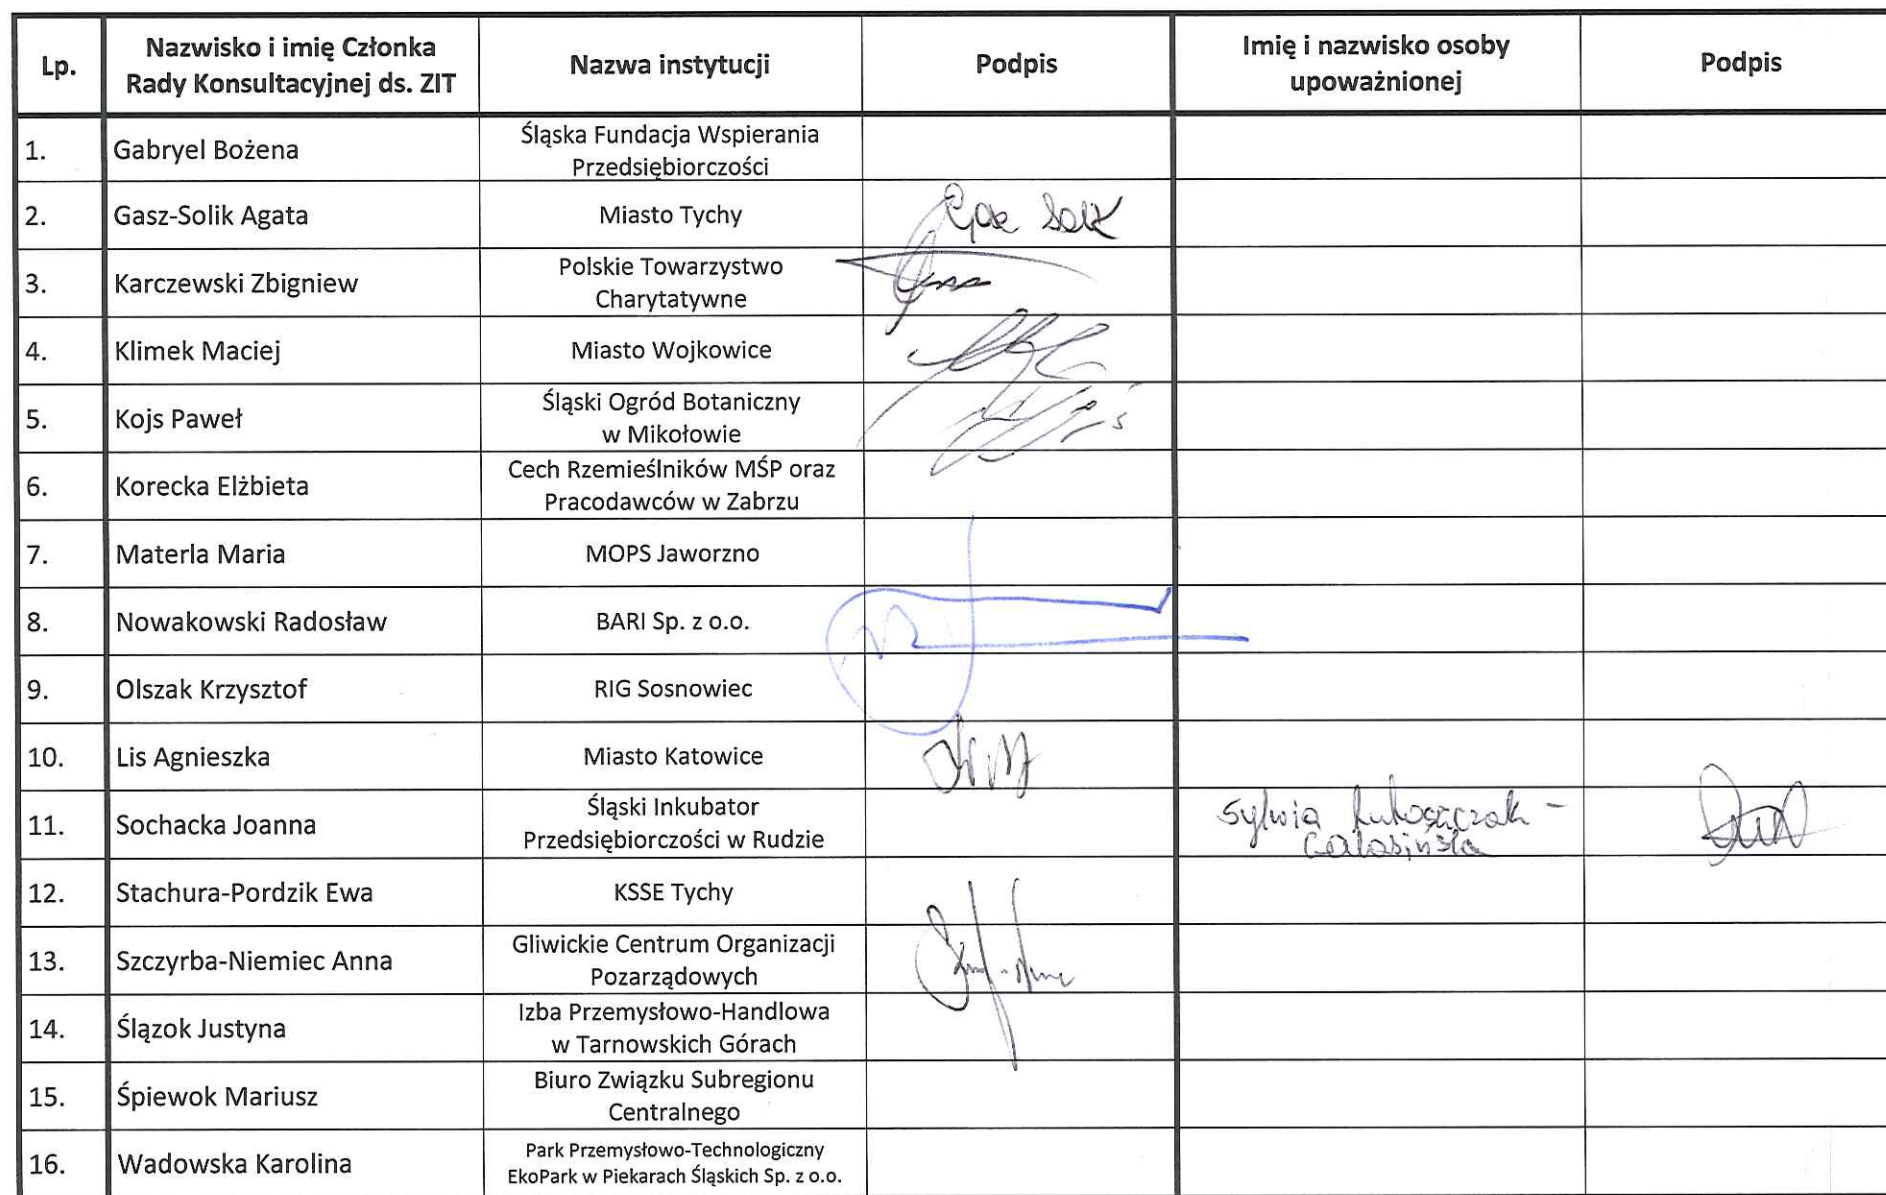 Lp.
Nazwisko i imię Członka
Rady Konsultacyjnej ds. ZIT
Nazwa instytucji
Podpis
Imię i nazwisko osoby
upoważnionej
Podpis
1.
Gabryel Bożena
Śląska Fundacja Wspierania
Przedsiębiorczości
2.
Gasz-Solik Agata
Miasto Tychy
3.
Karczewski Zbigniew
Polskie Towarzystwo
Charytatywne
4.
Klimek Maciej
Miasto Wojkowice
5.
Kojs Paweł
Śląski Ogród Botaniczny
w Mikołowie
6.
Korecka Elżbieta
Cech Rzemieślników MŚP oraz
Pracodawców w Zabrzu
7.
Materla Maria
MOPS Jaworzno
8.
Nowakowski Radosław
BARI Sp. z o.o.
9.
Olszak Krzysztof
RIG Sosnowiec
10.
Lis Agnieszka
Miasto Katowice
11.
Sochacka Joanna
Śląski Inkubator
Przedsiębiorczości w Rudzie
Sylwia
12.
Stachura-Pordzik Ewa
KSSE Tychy
13.
Szczyrba-Niemiec Anna
Gliwickie Centrum Organizacji
Pozarządowych
14.
Ślązok Justyna
Izba Przemysłowo-Handlowa
w Tarnowskich Górach
15.
Śpiewok Mariusz
Biuro Związku Subregionu
Centralnego
16.
Wadowska Karolina
Park Przemysłowo-Technologiczny
EkoPark w Piekarach Śląskich Sp. z o.o.